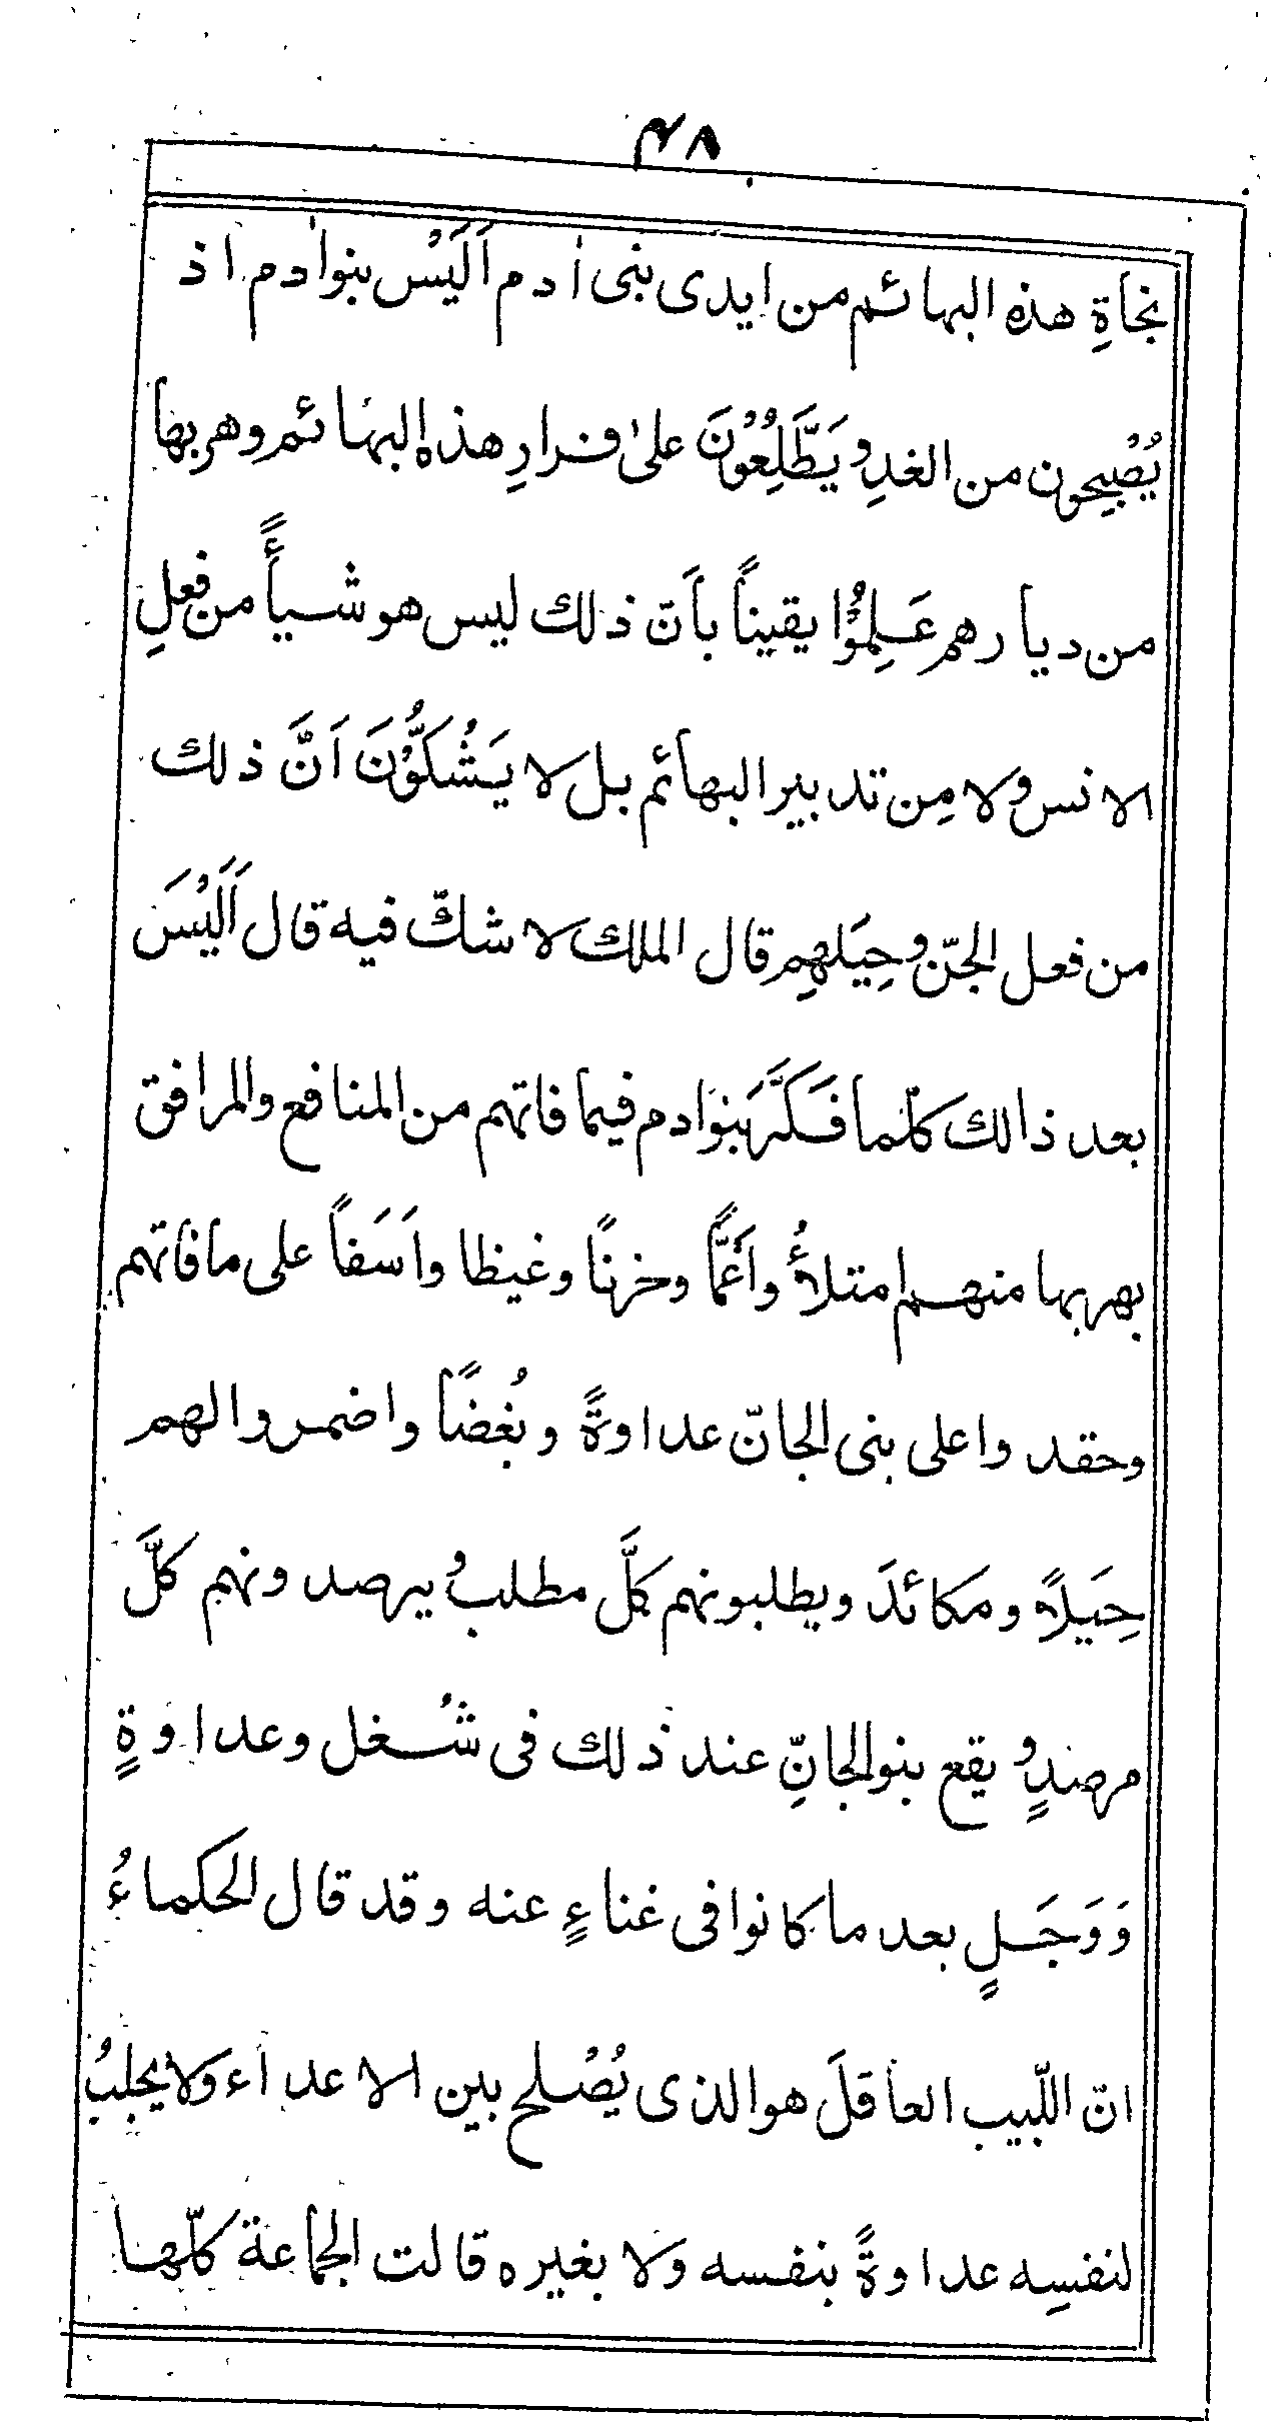 ۴۸
نجاةِ هذه البهائم من ايدى بنى اٰدم اَلَيْس بنواٰدم اذ
يُصْبِحون من الغدِ و يَطَّلِعُوْنَ علىٰ فرارِ هذه البهائم وهربها
من ديارهم عَلِمُوْا يقيناً بأنّ ذلك ليس هو شيأً من فعلِ
الانس ولا مِن تدبير البهائم بل لا يَشُكُّوْنَ اَنَّ ذلك
من فعل الجنّ وحِيَلهِم قال الملك لا شكّ فيه قال اَلَيْسَ
بعد ذالك كلّما فَكَّرَ بنوادم فيما فاتهم من المنافع والمرافق
بهربها منهم امتلأُ واغَمًّا وحزنًا وغيظا واَسَفاً على ما فاتهم
وحقد واعلى بنى الجانّ عداوةً وبُغضًا واضمروا لهم
حِيَلاً ومكائدَ ويطلبونهم كلَّ مطلب و يرصدونهم كلَّ
مرصدٍ و يقع بنوالجانِّ عند ذلك فى شُغل وعداوةٍ
وَوَجَلٍ بعد ما كانوا فى غناءٍ عنه وقد قال الحكماءُ
انّ اللّبيب العاقلَ هو الذى يُصْلح بين الاعداء ولا يجلبُ
لنفسِه عداوةً بنفسه ولا بغيره قالت الجماعة كلّها